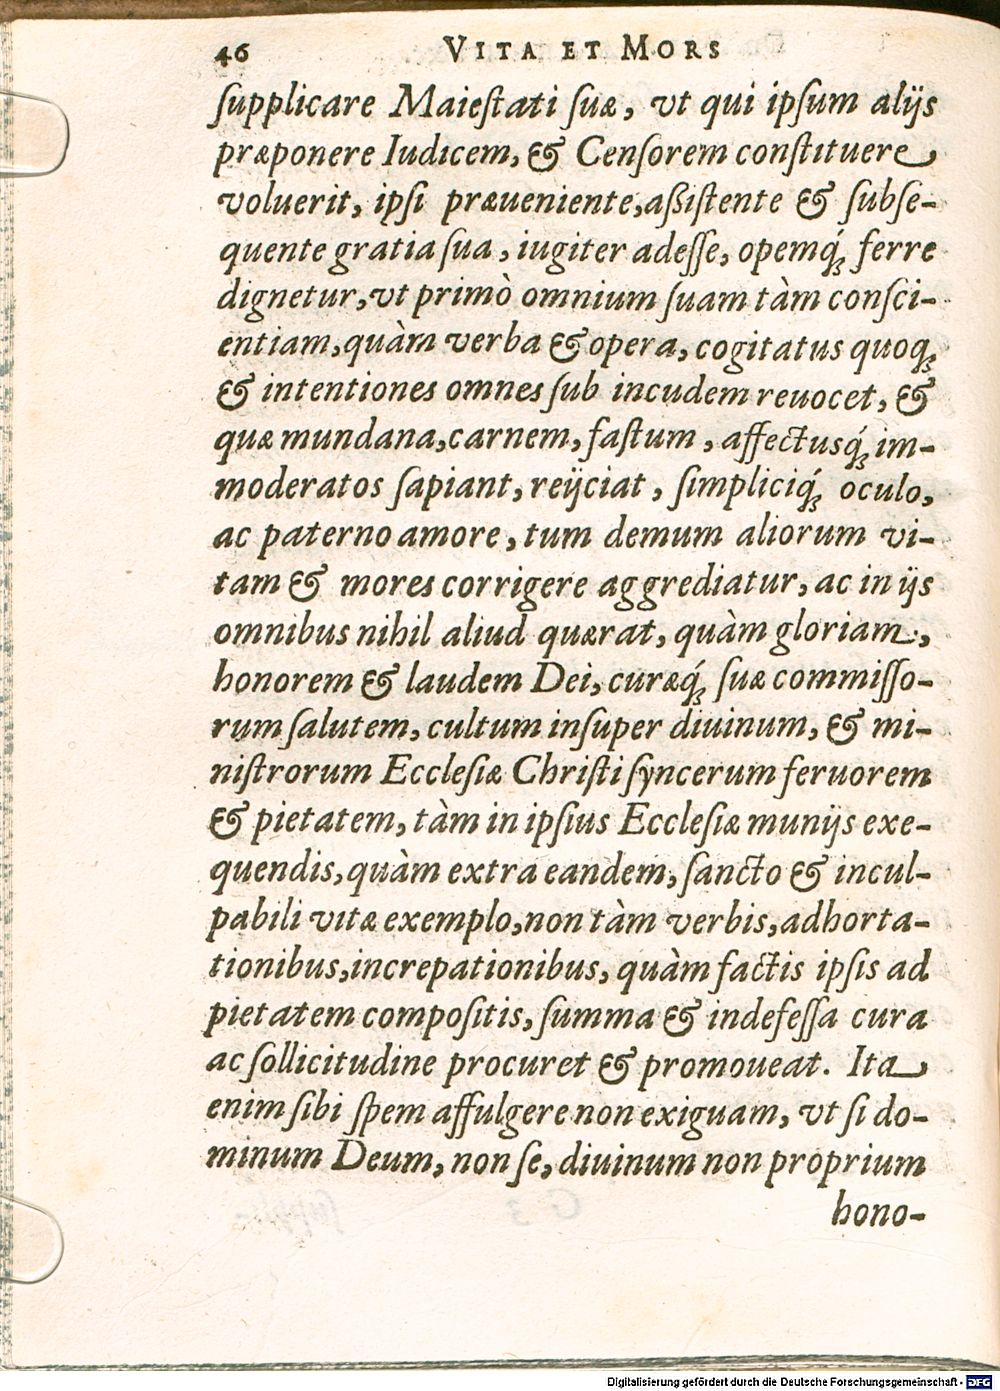 46 VITA ET MORS
ſupplicare Maieſtati ſuæ, vt qui ipſum alijs
præponere Iudicem, & Cenſorem conſtituere
voluerit, ipſi præueniente, aßiſtente & ſubſe-
quente gratia ſua, iugiter adeſſe, opemq́; ferre
dignetur, vt primò omnium ſuam tàm conſci-
entiam, quàm verba & opera, cogitatus quoq;
& intentiones omnes ſub incudem reuocet, &
quæ mundana, carnem, faſtum, affectusq́; im-
moderatos ſapiant, reijciat, ſimpliciq́; oculo,
ac paterno amore, tum demum aliorum vi-
tam & mores corrigere aggrediatur, ac in ijs
omnibus nihil aliud quærat, quàm gloriam,
honorem & laudem Dei, curæq́; ſuæ commiſſo-
rum ſalutem, cultum inſuper diuinum, & mi-
niſtrorum Eccleſiæ Chriſti ſyncerum feruorem
& pietatem, tàm in ipſius Eccleſiæ munijs exe-
quendis, quàm extra eandem, ſancto & incul-
pabili vitæ exemplo, non tàm verbis, adhorta-
tionibus, increpationibus, quàm factis ipſis ad
pietatem compoſitis, ſumma & indefeſſa cura
ac ſollicitudine procuret & promoueat. Ita
enim ſibi ſpem affulgere non exiguam, vt ſi do-
minum Deum, non ſe, diuinum non proprium
hono-
Digitalisierung gefördert durch die Deutsche Forschungsgemeinschaft - DFG